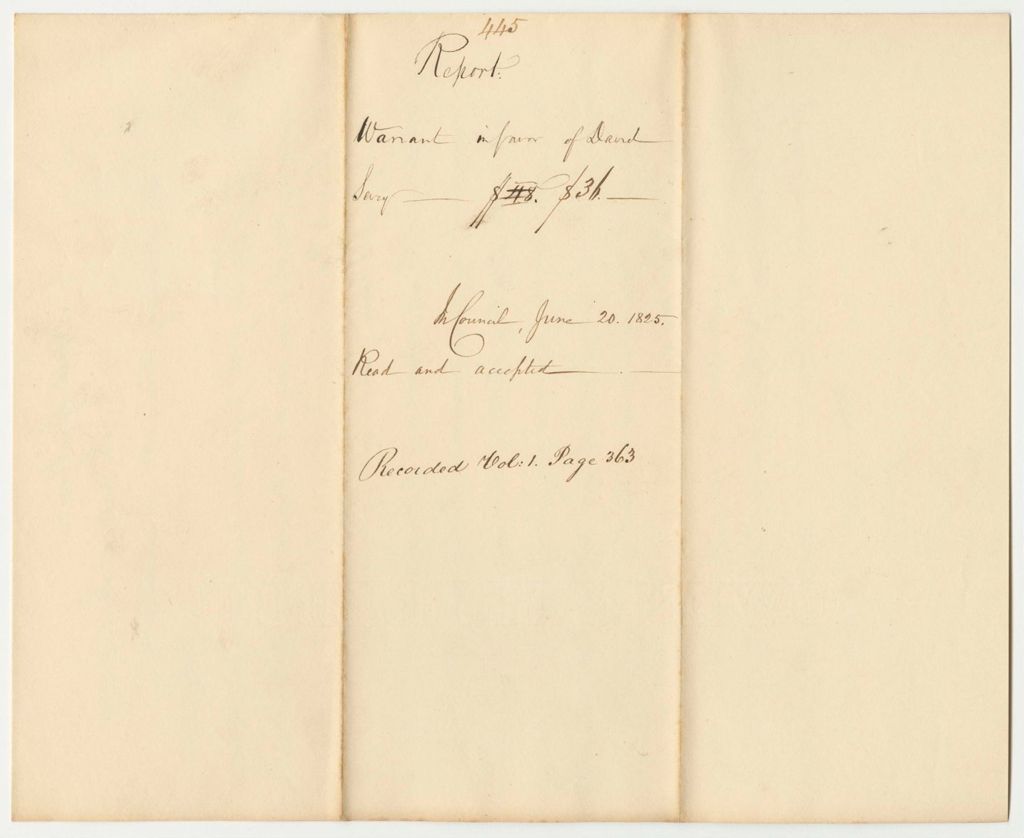 445
Report.
Warrant in favor of David
$48. $36.
In Council, June 20. 1825.
Read and accepted
Recorded Vol: 1. Page 363